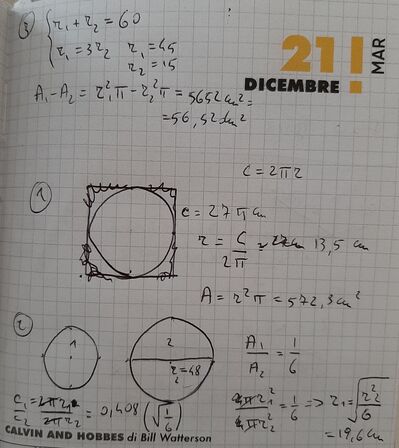 ③ { r₁ + r₂ = 60
r₁ = 3r₂ r₁ = 45
r₂ = 15
A₁ - A₂ = r₁²π - r₂²π = 5652 cm² =
= 56,52 dm²
21!
MAR
DICEMBRE
C = 2πr
①
C = 27π cm
r = C/2π = 13,5 cm
A = r²π = 572,3 cm²
②
1
2
r₂ = 48
A₁/A₂ = 1/6
C₁/C₂ = 2πr₁/2πr₂ = 0,408 (√1/6)
πr₁²/πr₂² = 1/6 => r₁ = √r₂²/6
= 19,6 cm
CALVIN AND HOBBES di Bill Watterson